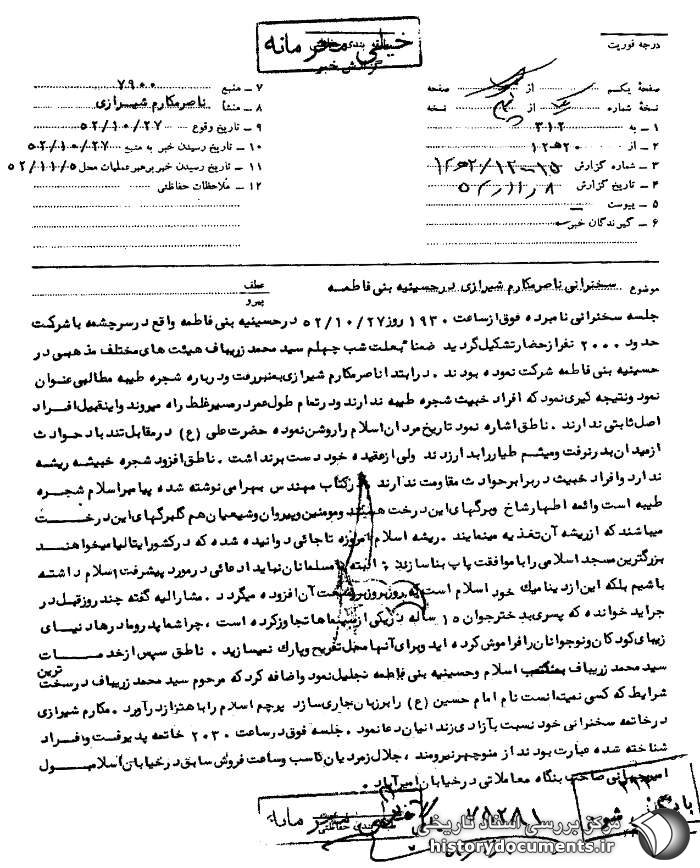 خیلی محرمانه
درجه فوریت
گزارش خبر
صفحهٔ یکم از صفحه
نسخهٔ شماره از نسخه
۱ ـ به ۳۱۲
۲ ـ از ۲۰ ه‍ ۱۲
۳ ـ شماره گزارش
۴ ـ تاریخ گزارش
۵ ـ پیوست
۶ ـ گیرندگان خبر
۷ ـ منبع ۷۹۰۰
۸ ـ منشأ ناصر مکارم شیرازی
۹ ـ تاریخ وقوع ۵۲/۱۰/۲۷
۱۰ ـ تاریخ رسیدن خبر به منبع ۵۲/۱۰/۲۷
۱۱ ـ تاریخ رسیدن خبر برهبر عملیات محل ۵۲/۱۱/۵
۱۲ ـ ملاحظات حفاظتی
موضوع سخنرانی ناصر مکارم شیرازی در حسینیه بنی فاطمه
عطف
پیرو
جلسه سخنرانی نامبرده فوق از ساعت ۱۹۳۰ روز ۵۲/۱۰/۲۷ در حسینیه بنی فاطمه واقع در سرچشمه با شرکت
حدود ۲۰۰۰ نفر از حضار تشکیل گردید ضمناً بعلت شب چهلم سید محمد زریباف هیئت های مختلف مذهبی در
حسینیه بنی فاطمه شرکت نموده بودند . در ابتدا ناصر مکارم شیرازی بمنبر رفت و درباره شجره طیبه مطالبی عنوان
نمود و نتیجه گیری نمود که افراد خبیث شجره طیبه ندارند و در تمام طول عمر در مسیر غلط راه میروند و اینقبیل افراد
اصل ثابتی ندارند . ناطق اشاره نمود تاریخ مردان اسلام را روشن نموده حضرت علی (ع) در مقابل تند باد حوادث
از میدان بدر نرفت و میثم طیار را بدار زدند ولی از عقیده خود دست بر نداشت . ناطق افزود شجره خبیثه ریشه
ندارد و افراد خبیث در برابر حوادث مقاومت ندارند کتاب مهندس بهرامی نوشته شده پیامبر اسلام شجره
طیبه است و ائمه اطهار شاخ و برگهای این درخت هستند و مومنین و پیروان و شیعیان هم گلبرگهای این درخت
میباشند که از ریشه آن تغذیه مینمایند . ریشه اسلام امروزه تا جائی دوانیده شده که در کشور ایتالیا میخواهند
بزرگترین مسجد اسلامی را با موافقت پاپ بنا سازند البته مسلمانان نباید ادعائی در مورد پیشرفت اسلام داشته
باشیم بلکه این از دینامیک خود اسلام است که روز بروز آن افزوده میگردد . مشارالیه گفته چند روز قبل در
جراید خوانده که پسری بدختر جوان ۱۵ ساله در یکی از سینماها تجاوز کرده است ، چرا شما پدر و مادرها دنیای
زیبای کودکان و نوجوانان را فراموش کرده اید و برای آنها محل تفریح و پارک نمیسازید . ناطق سپس از خدمات
سید محمد زریباف اسلام و حسینیه بنی فاطمه تجلیل نمود و اضافه کرد که مرحوم سید محمد زریباف در سخت ترین
شرایط که کسی نمیتوانست نام امام حسین (ع) را بر زبان جاری سازد پرچم اسلام را باهتزاز در آورد . مکارم شیرازی
در خاتمه سخنرانی خود نسبت بآزادی زندانیان دعا نمود . جلسه فوق در ساعت ۲۰۳۰ خاتمه پذیرفت و افراد
شناخته شده عبارت بودند از منوچهر نیرومند ، جلال زمردیان کاسب و ساعت فروش سابق در خیابان اسلامبول
صاحب بنگاه معاملاتی در خیابان امیرآباد .
خیلی محرمانه
۷۹۲۸۱
۳۱۲
بایگانی شود
مرکز بررسی اسناد تاریخی
historydocuments.ir